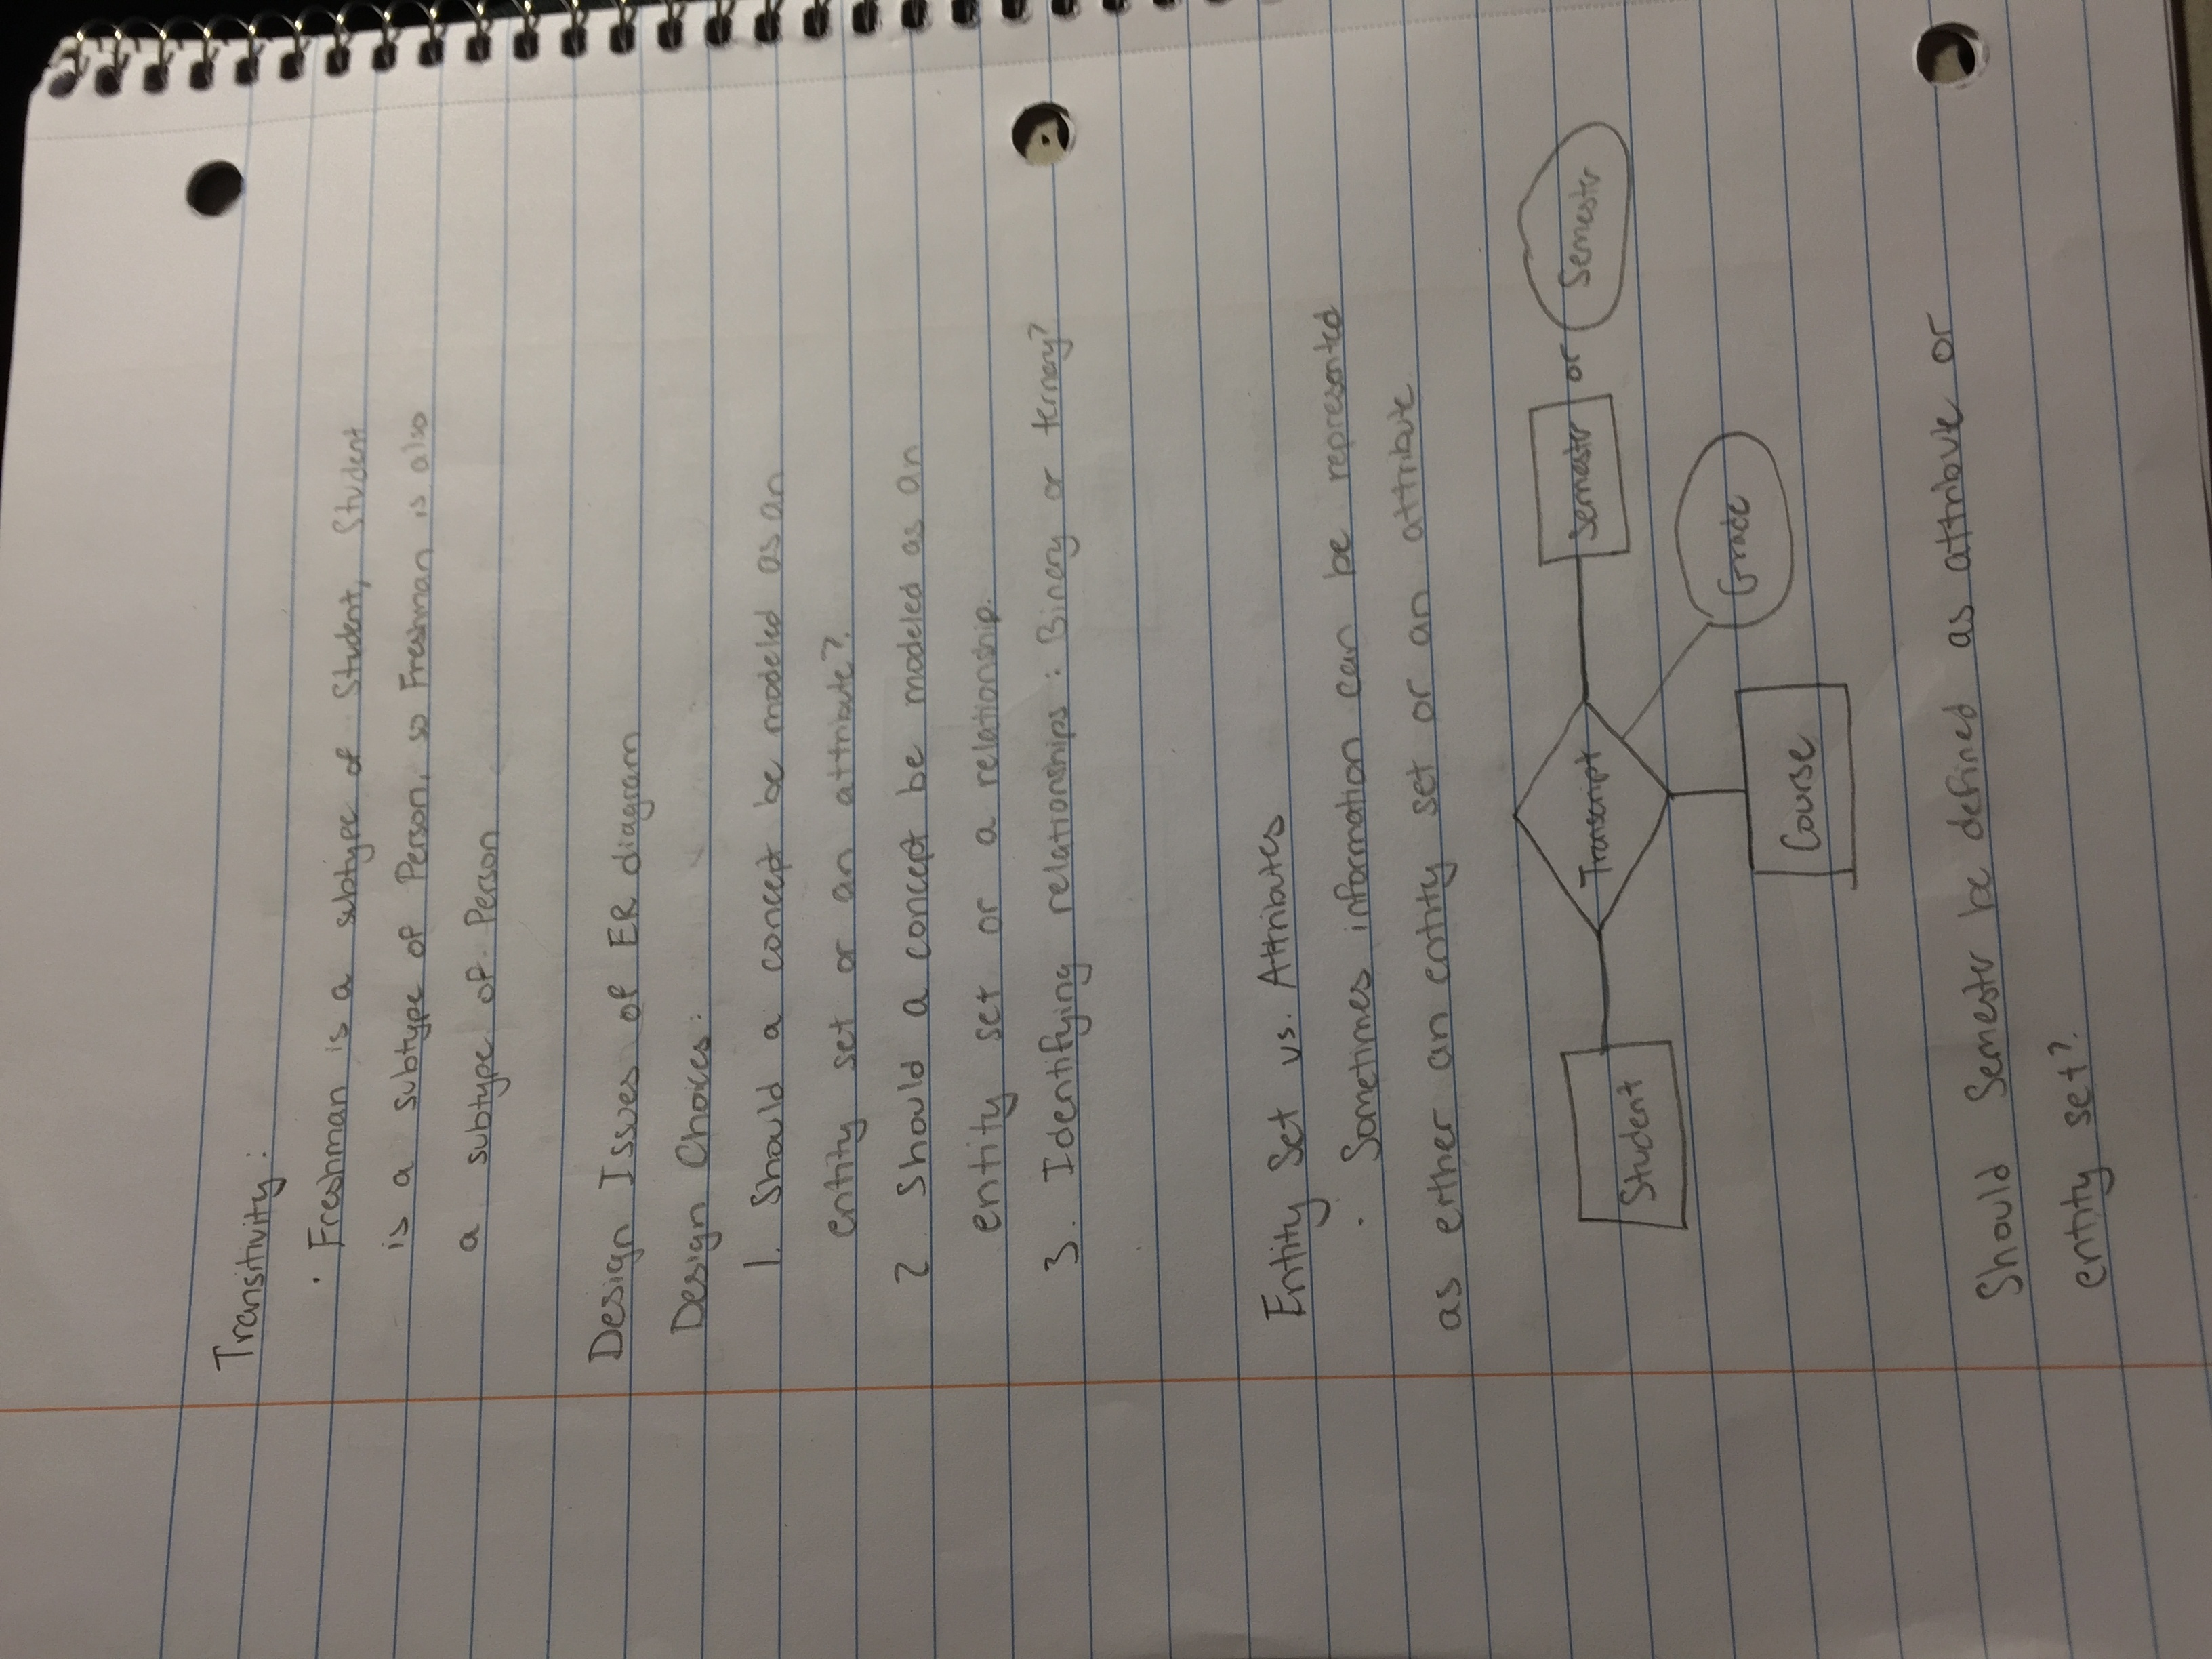 Transitivity:
· Freshman is a subtype of Student, Student
is a subtype of Person, so Freshman is also
a subtype of Person
Design Issues of ER diagram
Design Choices:
1. Should a concept be modeled as an
entity set or an attribute?
2 Should a concept be modeled as an
entity set or a relationship.
3. Identifying relationships: Binary or ternary?
Entity Set vs. Attributes
· Sometimes information can be represented
as either an entity set or an attribute
Student
Transcript
Semester or Semester
Grade
Course
Should Semester be defined as attribute or
entity set?